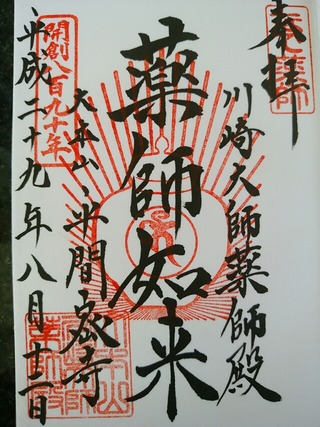 奉拝
川崎大師薬師殿
薬師如来
大本山 平間寺
平成二十九年八月十二日
開創八百九十年